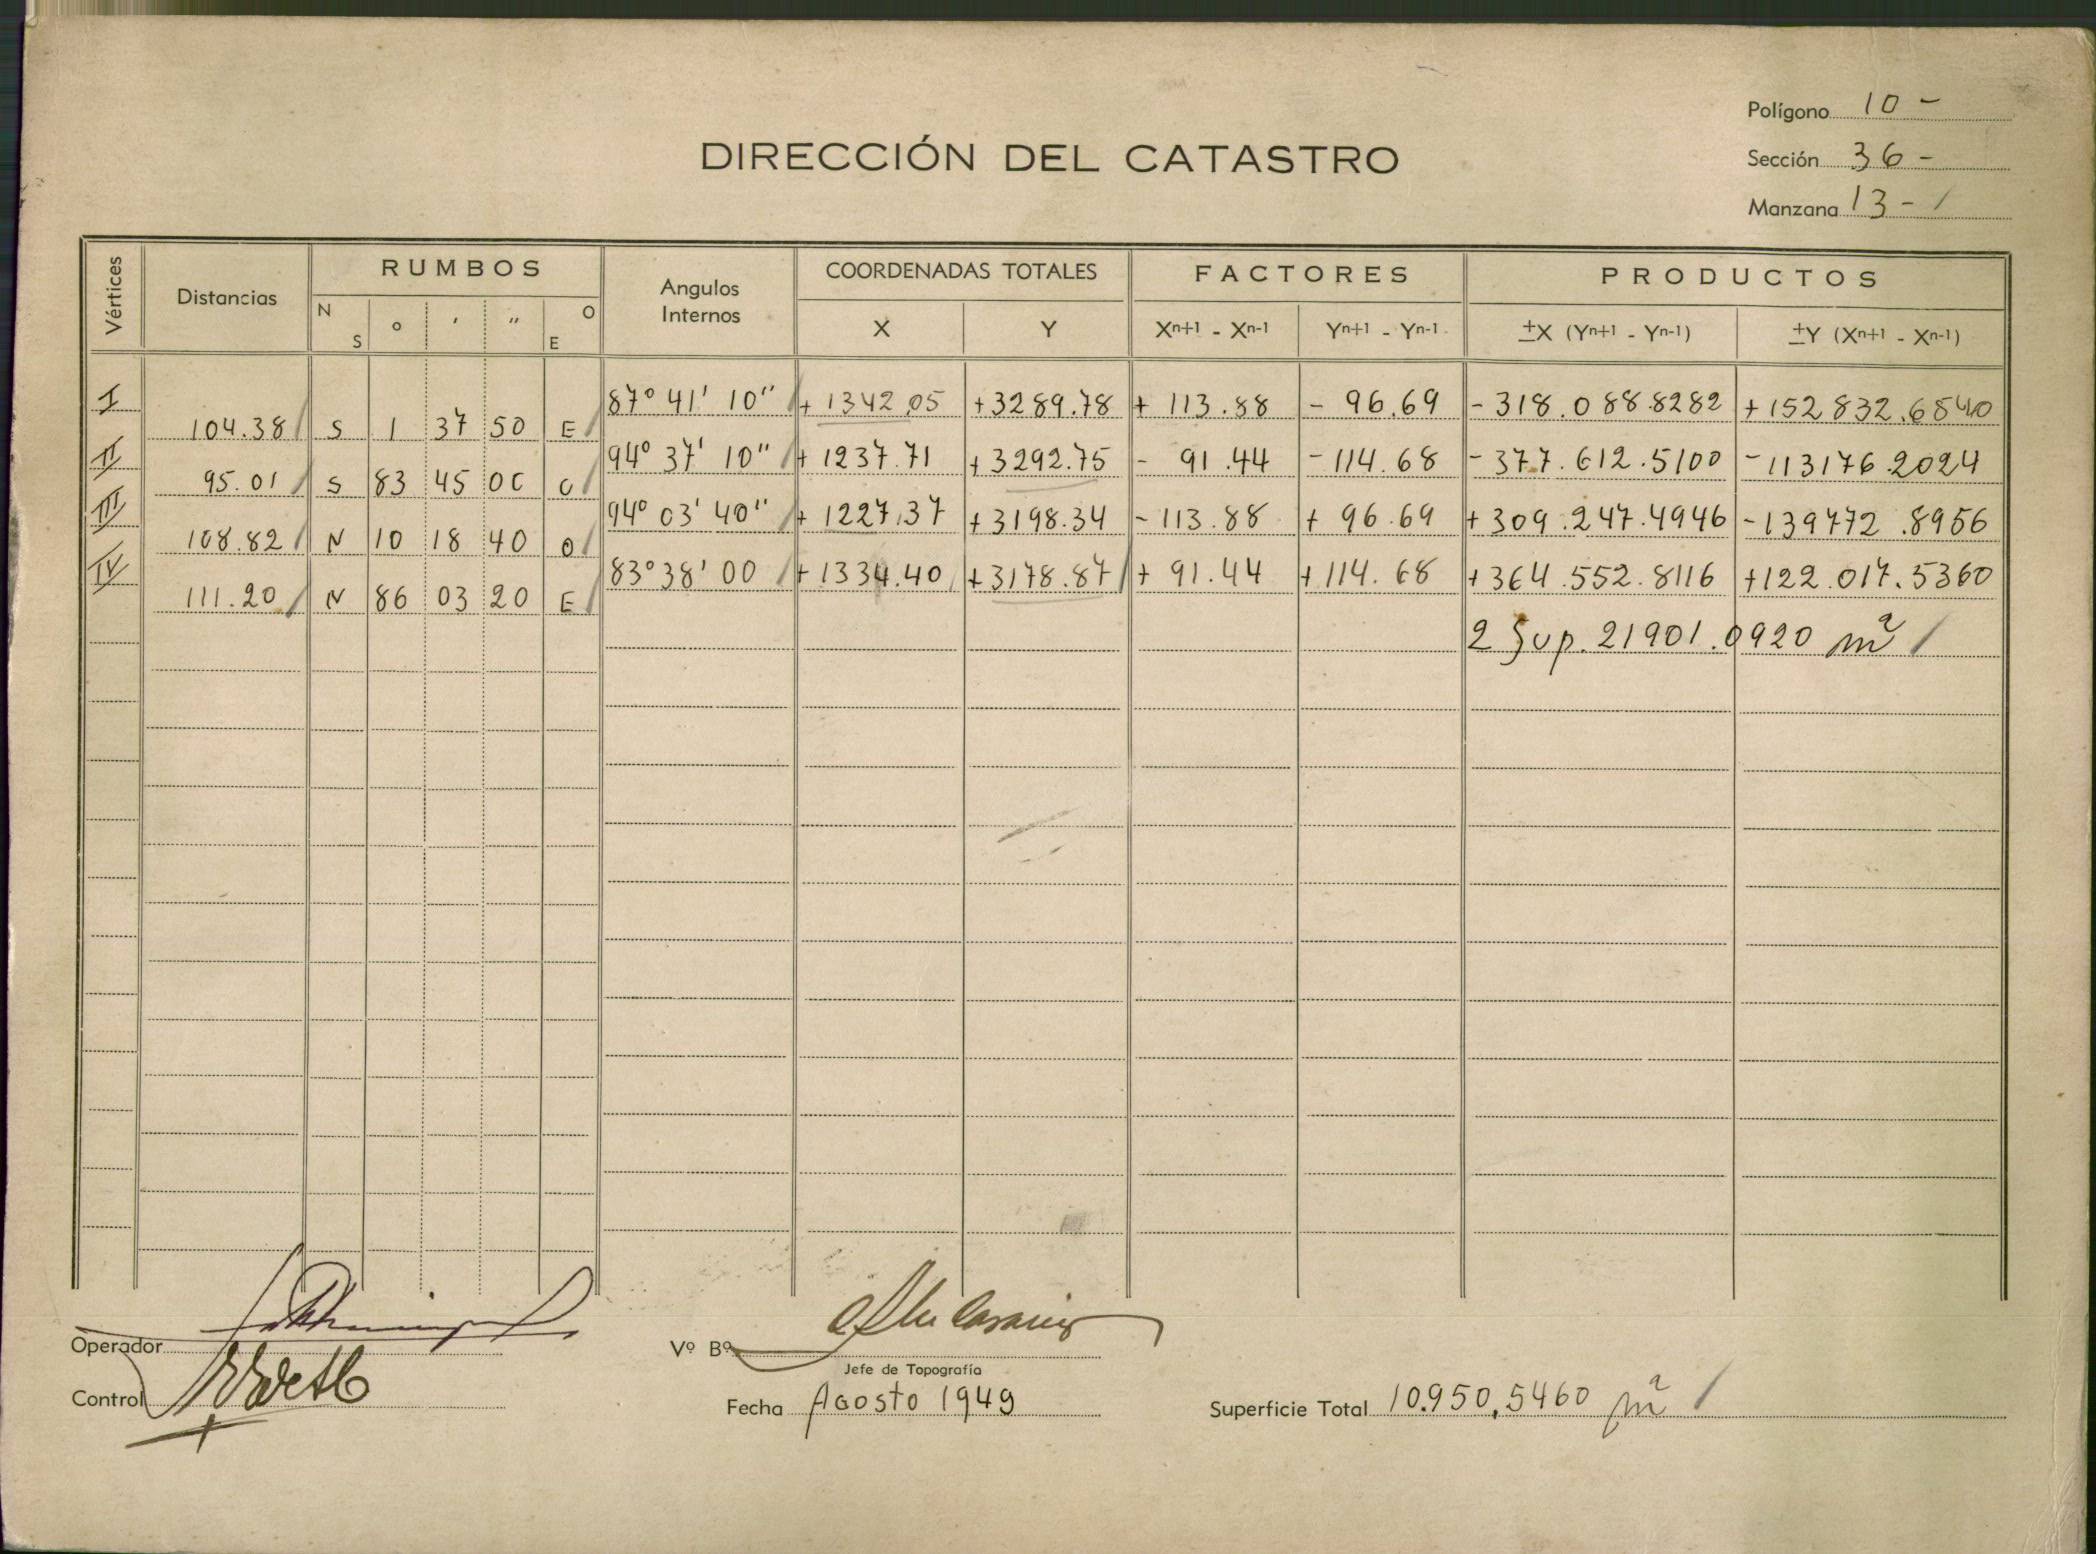 Polígono 10 -
Sección 36 -
Manzana 13 -
DIRECCIÓN DEL CATASTRO
Vértices Distancias RUMBOS Angulos Internos COORDENADAS TOTALES FACTORES PRODUCTOS
N S ° ' " O E X Y Xn+1 - Xn-1 Yn+1 - Yn-1 ±X (Yn+1 - Yn-1) ±Y (Xn+1 - Xn-1)
I 87° 41' 10" + 1342.05 +3289.78 + 113.88 - 96.69 - 318.088.8282 +152832.6840
104.38 S 1 37 50 E
II 94° 37' 10" + 1237.71 +3292.75 - 91.44 -114.68 - 377.612.5100 -113176.2024
95.01 S 83 45 00 O
III 94° 03' 40" + 1227.37 +3198.34 -113.88 + 96.69 +309.247.4946 -139772.8956
108.82 N 10 18 40 O
IV 83° 38' 00 +1334.40 +3178.87 + 91.44 +114.68 +364.552.8116 +122.017.5360
111.20 N 86 03 20 E
2 Sup. 21901.0920 m²
Operador
Vº Bº
Jefe de Topografía
Control
Fecha Agosto 1949
Superficie Total 10.950,5460 m²